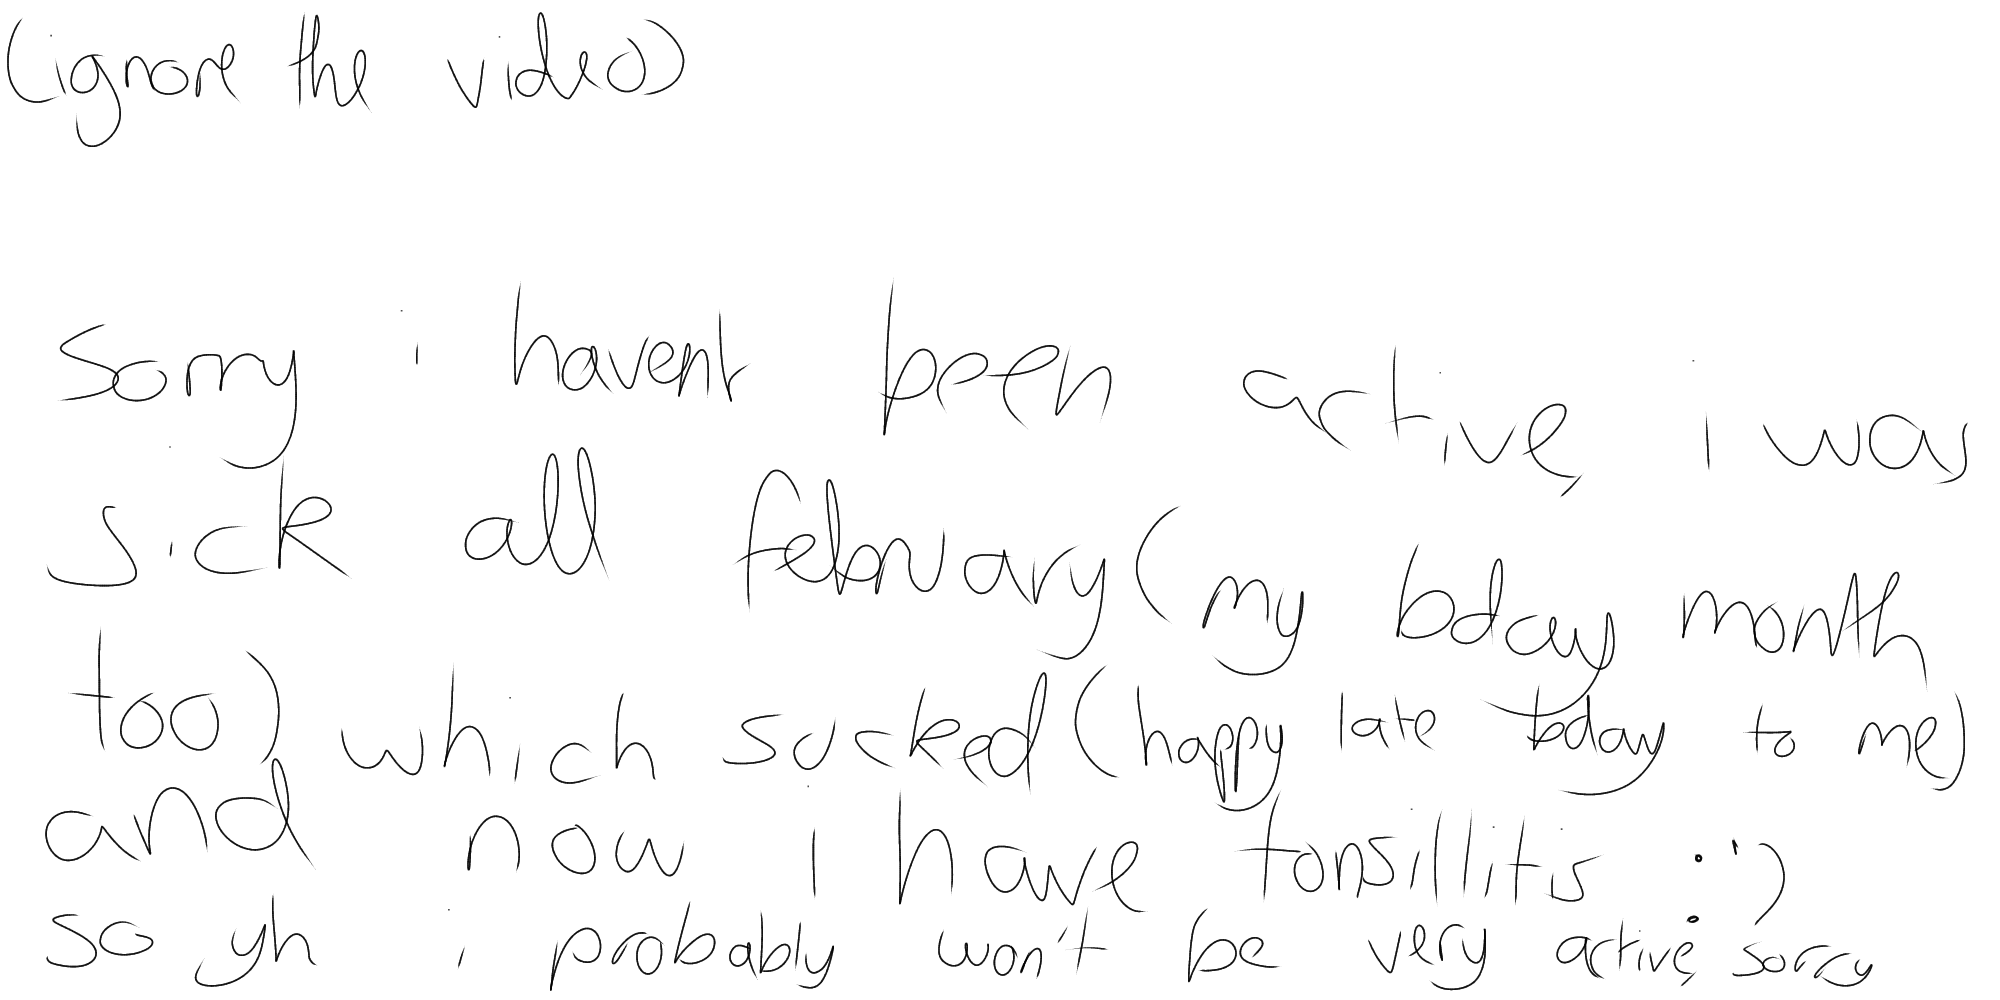 (ignore the video)
Sorry i havent been active, i was
sick all february (my bday month
too) which sucked (happy late bday to me)
and now i have tonsillitis :')
so yh i probably won't be very active, sorry